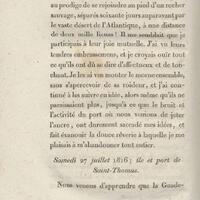 au prodige de se rejoindre au pied d'un rocher
sauvage, séparés soixante jours auparavant par
le vaste désert de l'Atlantique, à une distance
de deux mille lieues! Il me semblait que je
participais à leur joie mutuelle. J'ai vu leurs
tendres embrassemens, et je croyais entendre ce
qu'ils ont dû se dire d'affectueux et de
touchant. Je les ai vus monter le morne ensemble,
sans s'apercevoir de sa roideur, et j'ai
continué à les suivre en idée, alors même qu'ils ne
paraissaient plus, jusqu'à ce que le bruit et
l'activité du port où nous venions de jeter
l'ancre, ont durement saccadé mes idées, et
fait évanouir la douce rêverie à laquelle je me
plaisais à m'abandonner tout entier.
Samedi 27 juillet 1816; île et port de
Saint-Thomas.
Nous venons d'apprendre que la Guade-